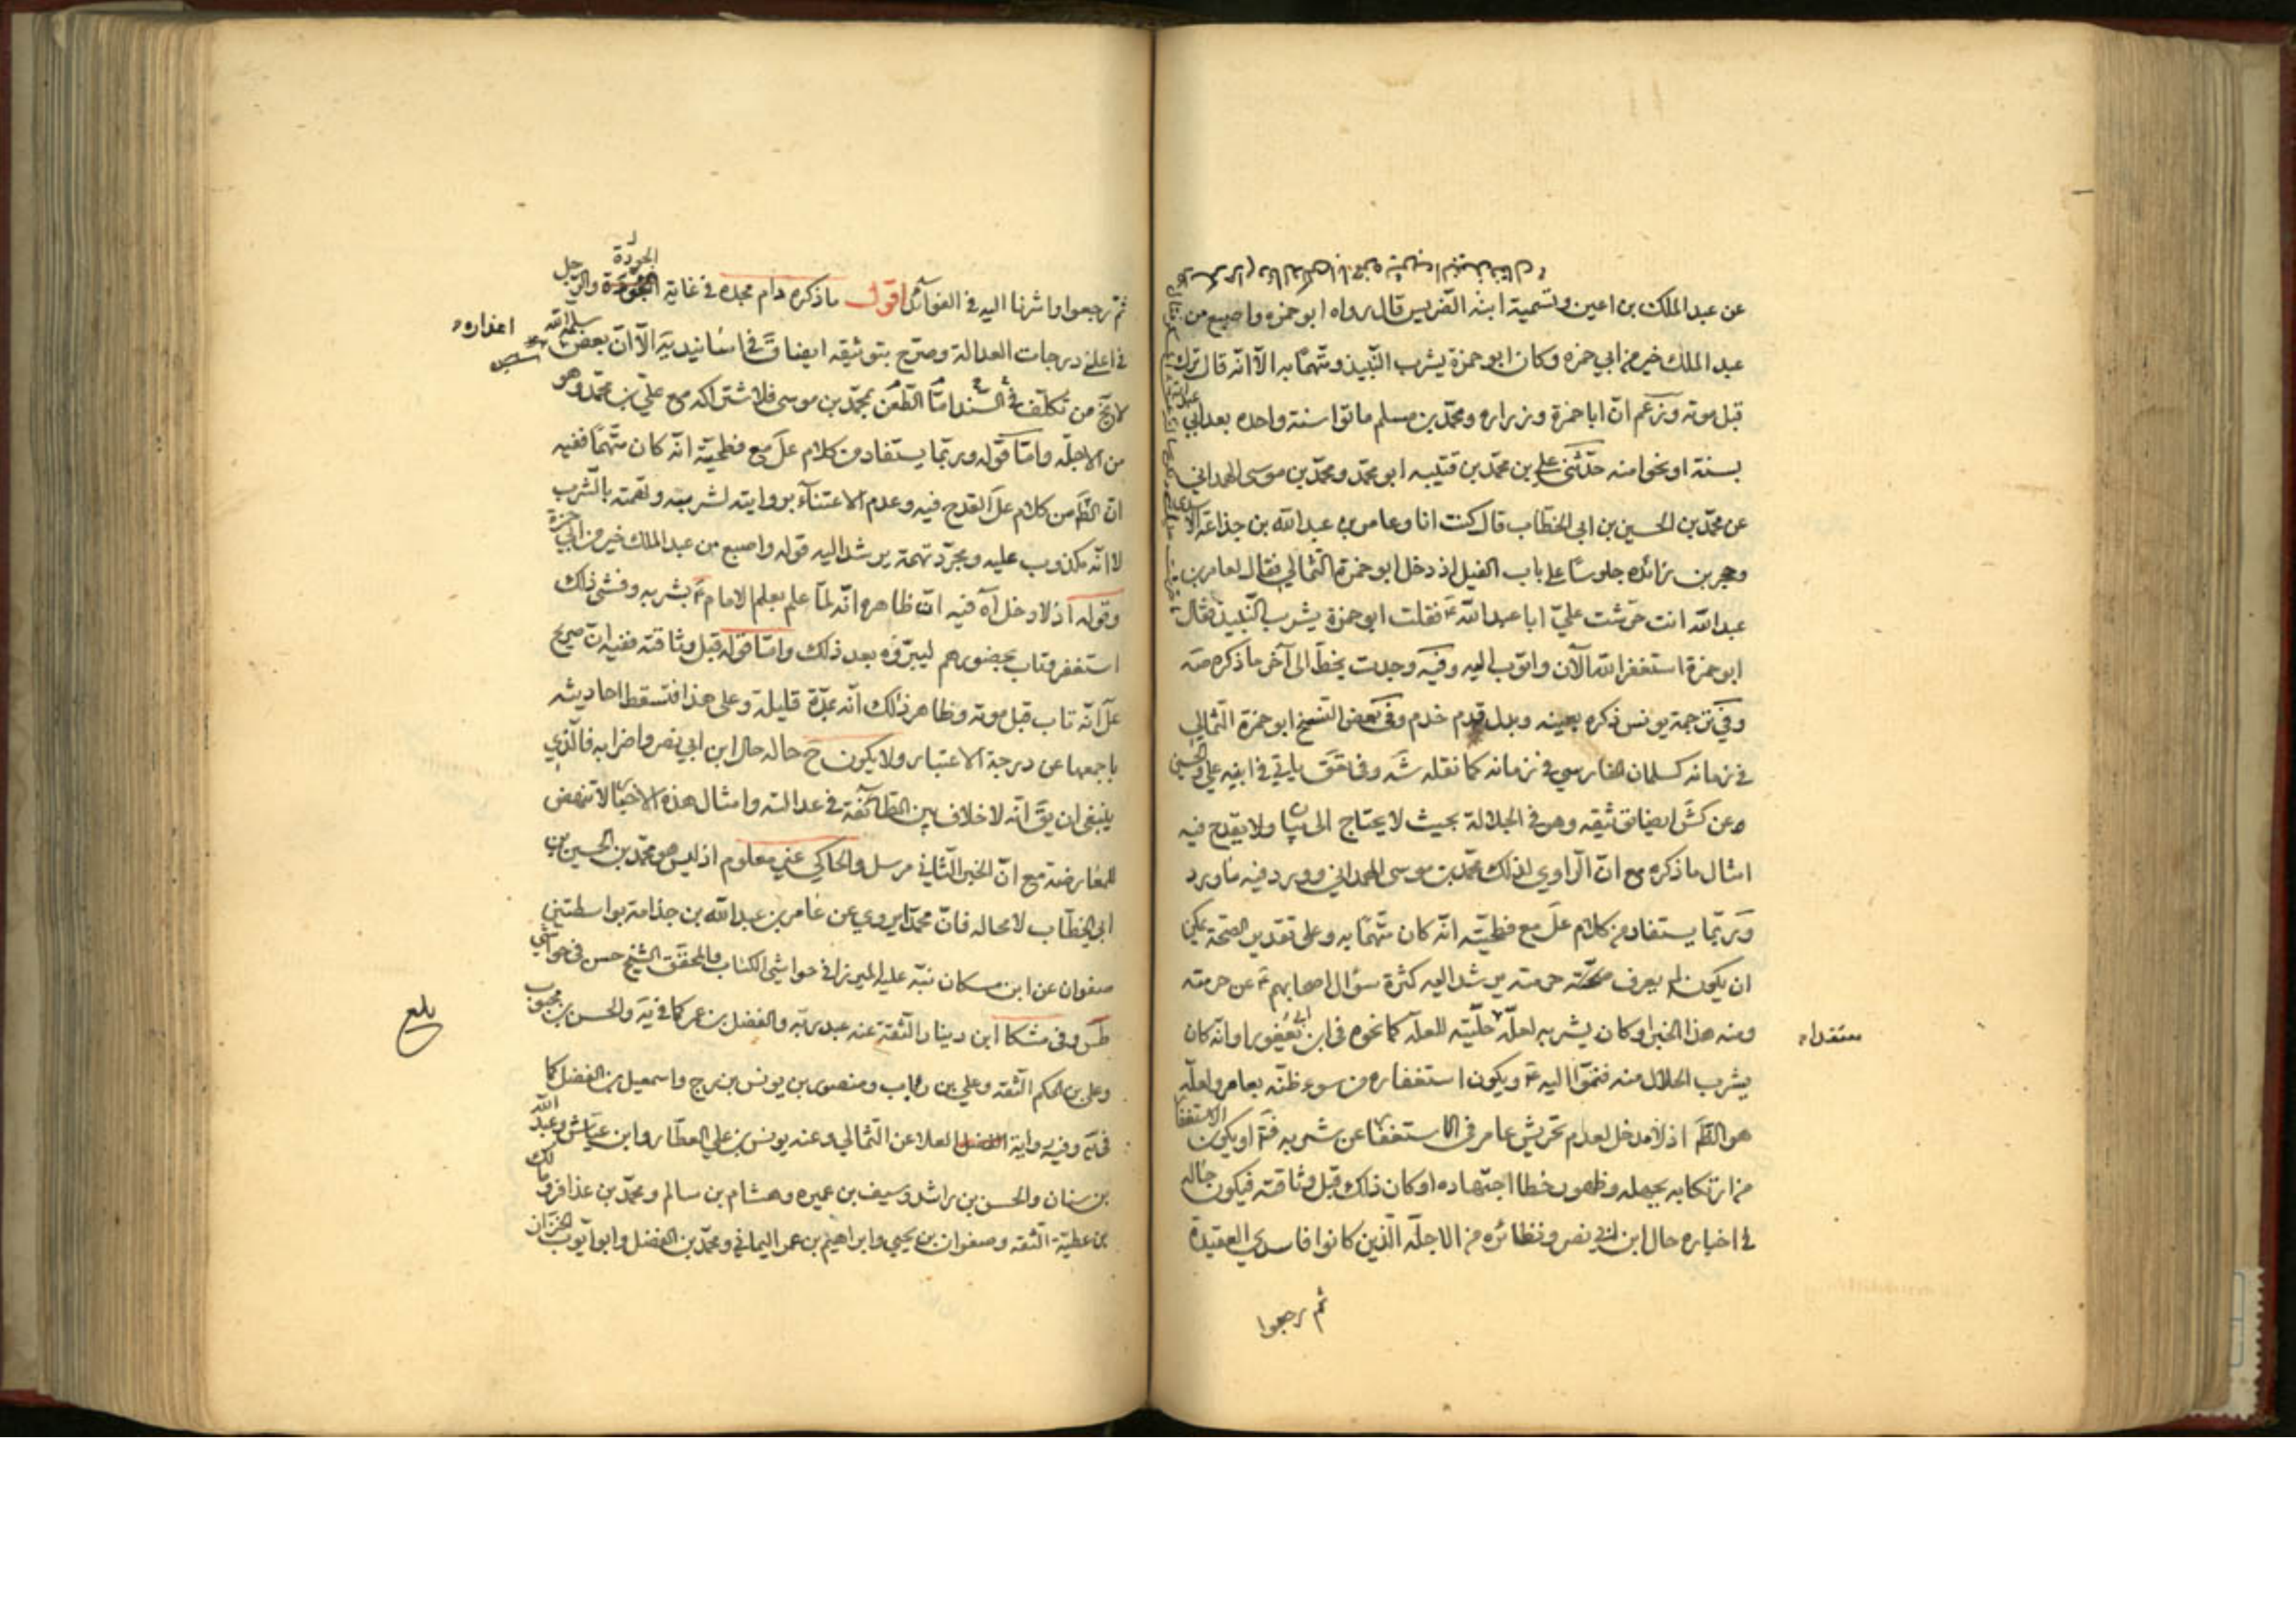 عن عبد الملك بن اعين وتسمية ابنه الضريس قال رواه ابو حمزه واصبع من
عبد الملك خير من ابي حمزه وكان ابو حمزة يشرب النبيذ ومتهما به الا انه قال ترك
قبل موته وزعم ان ابا حمزة وزراره ومحمد بن مسلم ماتوا سنة واحده بعد ابي عبد الله
بسنة او نحوا منه حدثني علي بن محمد بن قتيبه ابو محمد ومحمد بن موسى الهمداني
عن محمد بن الحسين بن ابي الخطاب قال كنت انا وعامر بن عبد الله بن جذاعة الازدي
وحجر بن زائده جلوسا على باب الفيل اذ دخل ابو حمزة الثمالي فقال لعامر بن
عبد الله انت حرشت علي ابا عبد الله ع فقلت ابو حمزة يشرب النبيذ فقال
ابو حمزة استغفر الله الآن واتوب اليه وفيه وجدت بخط الى آخر ما ذكره صه
وفي ترجمة يونس ذكره بعينه وبدل قدم خدم وفي بعض النسخ ابو حمزة الثمالي
في زمانه كسلمان الفارسي في زمانه كما نقله شه وفي تعق ياتي في ابنيه علي والحسين
عن كش ايضا توثيقه وهو في الجلالة بحيث لا يحتاج الى بيان ولا يقدح فيه
امثال ما ذكره مع ان الراوي لذلك محمد بن موسى الهمداني وورد فيه ما ورد
وربما يستفاد من كلام عل مع فطحيته انه كان متهما به وعلى تقدير الصحة يمكن
ان يكون لم يعرف حرمته يرشد اليه كثرة سؤال اصحابهم ع عن حرمته
ومنه هذا الخبر او كان يشربه لعلة حليته للعلة كما نحوه في ابن ابي يعفور او انه كان
معتقدا
يشرب الحلال منه فنموا اليه ع ويكون استغفاره من سوء ظنه بعامر ولعله
هو الظ اذ لا مدخل لعدم تحريش عامر في الاستغفار عن شربه فتم او يكون الاستغفار
من ارتكابه بجهله وظهور خطا اجتهاده او كان ذلك قبل وثاقته فيكون حاله
في اخباره حال ابن ابي نصر ونظائره من الاجلة الذين كانوا فاسدي العقيدة
ثم رجعوا
ثم رجعوا واشرنا اليه في الفوائد اقول ما ذكره دام مجده في غاية الجودة والرجل
في اعلى درجات العدالة وصرح بتوثيقه ايضا ق في اسانيد يه الا ان بعض اعذاره سلمه الله
لا يخ من تكلف في السند اما الطعن بمحمد بن موسى فلاشتراكه مع علي بن محمد وهو
من الاجلة واما قوله وربما يستفاد من كلام عل مع فطحيته انه كان متهما ففيه
ان الظ من كلام عل القدح فيه وعدم الاعتناء بروايته لشربه وتهمته بالشرب
لا انه مكذوب عليه ومجرد تهمة يرشد اليه قوله واصبع من عبد الملك خير من ابي حمزة
وقوله اذ لا دخل آه فيه ان ظاهره انه لما علم بعلم الامام ع بشربه وفشى ذلك
استغفر وتاب بحضورهم ليبرؤه بعد ذلك واما قوله قبل وثاقته ففيه ان صريح
عل انه تاب قبل موته وظاهر ذلك انه بمدة قليلة وعلى هذا فتسقط احاديثه
باجمعها عن درجة الاعتبار ولا يكون ح حاله حال ابن ابي نصر واضرابه فالذي
ينبغي ان يق انه لا خلاف بين الطائفة في عدالته وامثال هذه الاخبار لا تنهض
للمعارضة مع ان الخبر الثاني مرسل والحاكي غير معلوم اذ ليس هو محمد بن الحسين بن
ابي الخطاب لا محاله فان محمدا يروي عن عامر بن عبد الله بن جذامة بواسطتين
صفوان عن ابن مسكان نبه عليه الميرزا في حواشي الكتاب والمحقق الشيخ حسن في حواشي
طس وفي مشكا ابن دينار الثقة عنه عبد ربه والفضل بن عمر كما في يه والحسن بن محبوب
بلغ
وعلي بن الحكم الثقه وعلي بن رئاب ومنصور بن يونس بزرج واسمعيل بن الفضل كما
في يه وفيه رواية العلا عن الثمالي وعنه يونس بن علي العطار وابن عياش وعبد الله
بن سنان والحسن بن راشد وسيف بن عميره وهشام بن سالم ومحمد بن عذافر ومالك
بن عطية الثقه وصفوان بن يحيى وابراهيم بن عمر اليماني ومحمد بن الفضل وابو ايوب الخزان